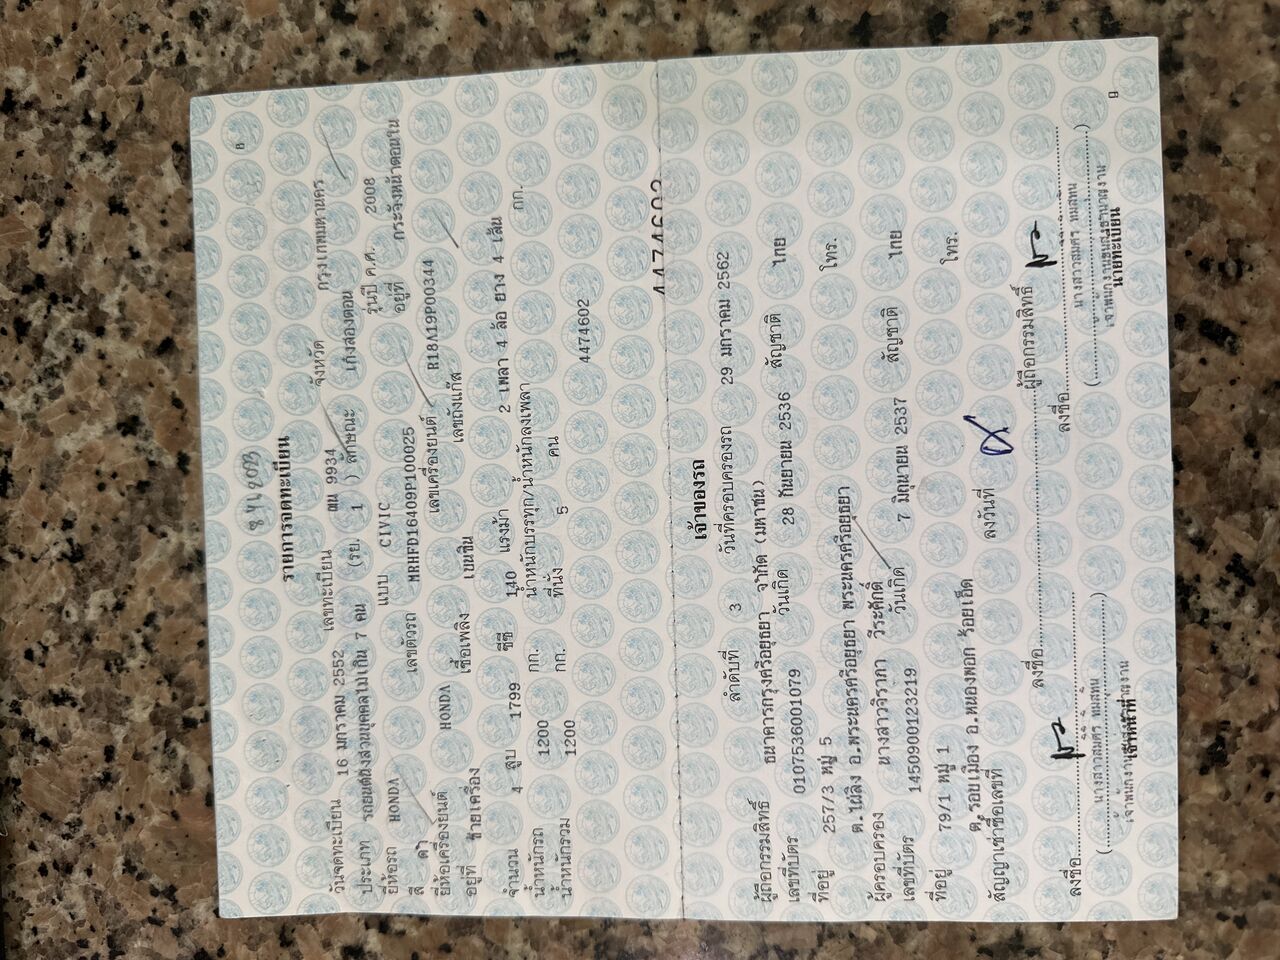 8 ม.ค. 2023
รายการจดทะเบียน
วันจดทะเบียน 16 มกราคม 2552 เลขทะเบียน ฌน 9934 จังหวัด กรุงเทพมหานคร
ประเภท รถยนต์นั่งส่วนบุคคลไม่เกิน 7 คน (รย. 1 ) ลักษณะ เก๋งสองตอน
ยี่ห้อรถ HONDA แบบ CIVIC รุ่นปี ค.ศ. 2008
สี ดำ เลขตัวรถ MRHFD16409P100025 อยู่ที่ กระจังหน้าตอนใน
ยี่ห้อเครื่องยนต์ HONDA เลขเครื่องยนต์ R18A19P00344
อยู่ที่ ซ้ายเครื่อง เชื้อเพลิง เบนซิน เลขถังแก๊ส
จำนวน 4 สูบ 1799 ซีซี 140 แรงม้า 2 เพลา 4 ล้อ ยาง 4 เส้น
น้ำหนักรถ 1200 กก. น้ำหนักบรรทุก/น้ำหนักลงเพลา กก.
น้ำหนักรวม 1200 กก. ที่นั่ง 5 คน 4474602
4474602
เจ้าของรถ
ลำดับที่ 3 วันที่ครอบครองรถ 29 มกราคม 2562
ผู้ถือกรรมสิทธิ์ ธนาคารกรุงศรีอยุธยา จำกัด (มหาชน)
เลขที่บัตร 0107536001079 วันเกิด 28 กันยายน 2536 สัญชาติ ไทย
ที่อยู่ 257/3 หมู่ 5 โทร.
ต.ไผ่ลิง อ.พระนครศรีอยุธยา พระนครศรีอยุธยา
ผู้ครอบครอง นางสาววิราภา วีระศักดิ์
เลขที่บัตร 1450900123219 วันเกิด 7 มิถุนายน 2537 สัญชาติ ไทย
ที่อยู่ 79/1 หมู่ 1 โทร.
ต.รอบเมือง อ.หนองพอก ร้อยเอ็ด
สัญญาเช่าซื้อเลขที่ ลงวันที่
ลงชื่อ ผู้ถือกรรมสิทธิ์
ลงชื่อ ลงชื่อ
เจ้าหน้าที่ นายทะเบียน